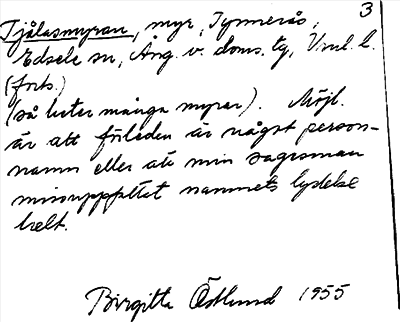 3
Tjålasmyran, myr, Tynnerås,
Edsele sn, Ång. v. doms. tg, Vnl. l.
(forts.)
(så heter många myrar). Möjl.
är att förleden är något person-
namn eller att min sagesman
missuppfattat namnets lydelse
helt.
Birgitta Östlund 1955